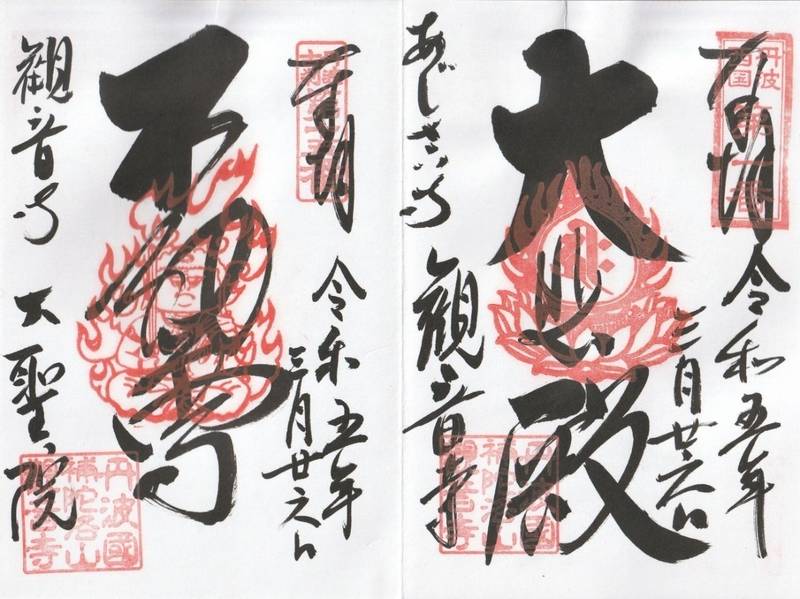 奉拝
丹波
西国
第一番
令和五年
三月廿六日
大悲殿
あじさい寺
観音寺
丹波國
補陀洛山
観音寺
奉拝
令和五年
三月廿六日
不動尊
観音寺
大聖院
丹波國
補陀洛山
観音寺